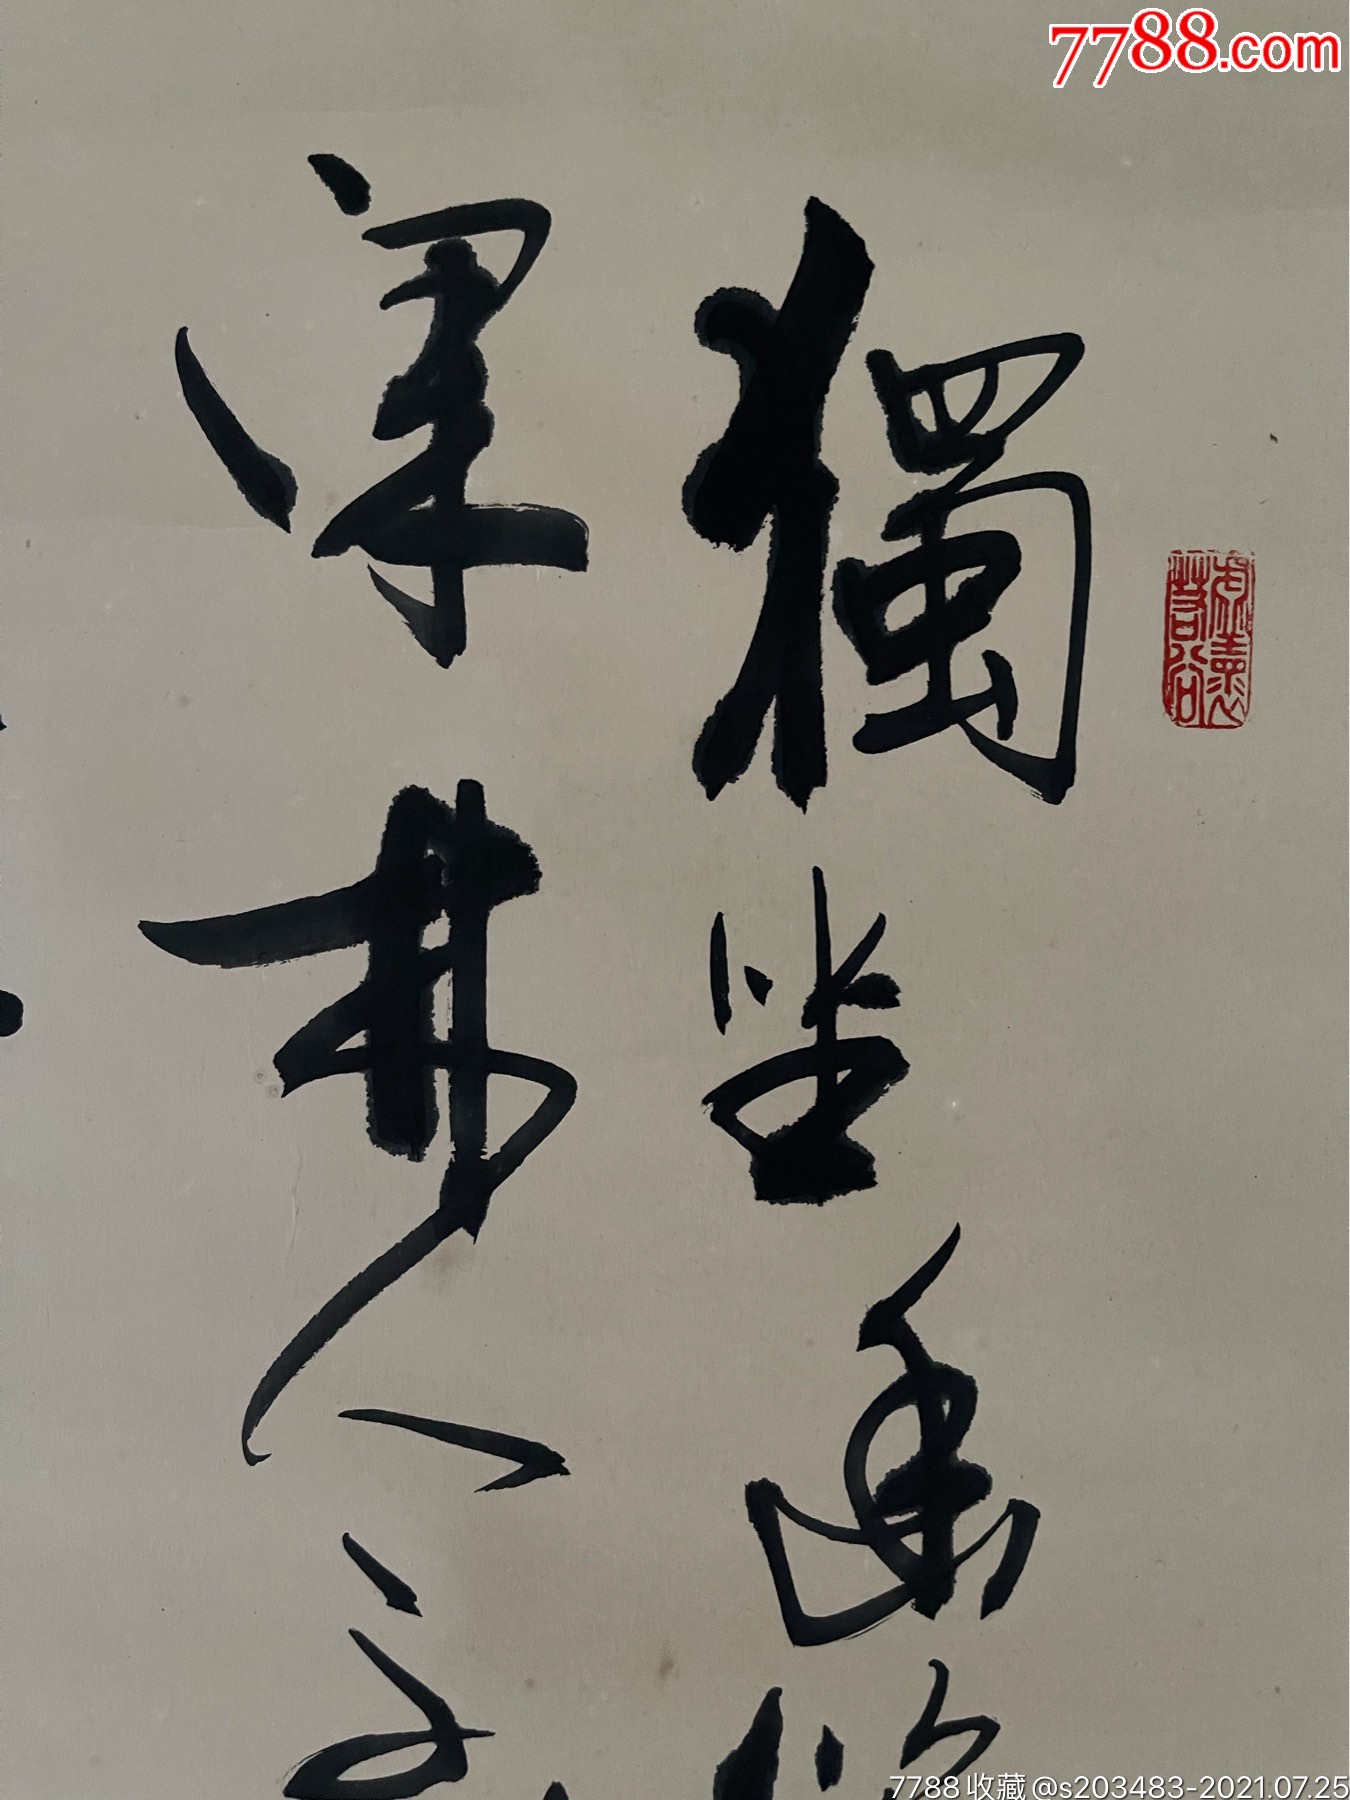 7788.com
虛懷若谷
獨坐幽
深林人不
7788收藏@s203483-2021.07.25